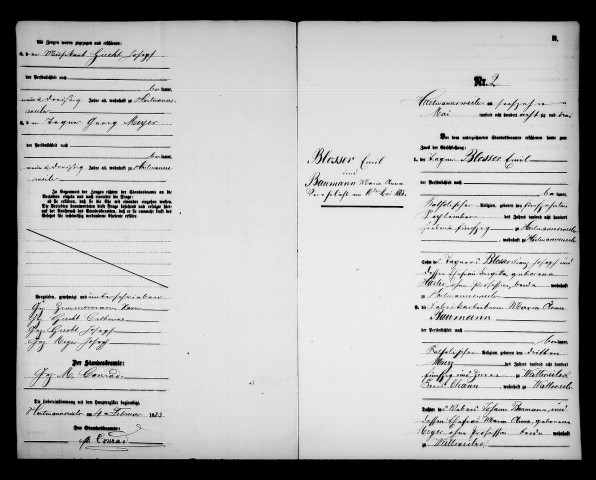 Als Zeugen waren zugezogen und erschienen:
3. der Musikant Huckl Joseph
der Persönlichkeit nach
kannt,
neun & dreißig Jahre alt, wohnhaft zu Hartmanns-
weiler
4. der Tagner Georg Meyer
der Persönlichkeit nach
kannt,
Jahre alt, wohnhaft zu Hartmanns-
weiler
In Gegenwart der Zeugen richtete der Standesbeamte an die
Verlobten einzeln und nach einander die Frage:
ob sie erklären, daß sie die Ehe mit einander eingehen wollen.
Die Verlobten beantworteten diese Frage bejahend und erfolgte hierauf
der Ausspruch des Standesbeamten, daß er sie nunmehr kraft des
Gesetzes für rechtmäßig verbundene Eheleute erkläre.
Vorgelesen, genehmigt und unterschrieben
Gez. Zimmermann
Gez. Huckl
Gez. Huckl Joseph
Gez. Meyer Joseph
Der Standesbeamte:
Gez. M. Conrad
Die Uebereinstimmung mit dem Hauptregister beglaubigt.
Hartmannsweiler am 4. Februar 1883
Der Standesbeamte:
M. Conrad
Blosser Emil
und
Baumann Maria Anna
B.
Nr. 2
Hartmannsweiler am sechzehnten
Mai tausend acht hundert acht zig und drei
Vor dem unterzeichneten Standesbeamten erschienen heute zum
Zweck der Eheschließung:
1. der Tagner Blosser Emil
der Persönlichkeit nach
kannt,
katholischer Religion, geboren den fünfzehnten
September des Jahres tausend acht hundert
fünfzig zu Hartmannsweiler
, wohnhaft zu Hartmannsweiler
Sohn des Tagners Blosser Franz Joseph und
dessen Ehefrau Brigitta, geborene
ohne Profession, beide wohnhaft
zu Hartmannsweiler
2. die Fabrikarbeiterin Maria Anna
Baumann
der Persönlichkeit nach
kannt,
katholischer Religion, geboren den dritten
März des Jahres tausend acht hundert
fünfzig und zwei zu Wattweiler
Kreis Thann, wohnhaft zu Wattweiler
Tochter des Webers Johann Baumann, und
dessen Ehefrau Maria Anna, geborene
ohne Profession beide wohnhaft
zu Wattweiler